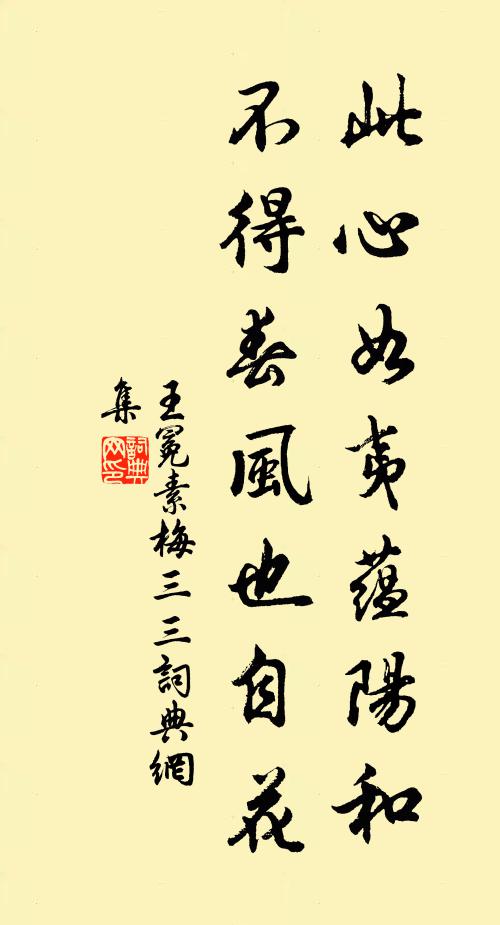 此心如夷蘊陽和
不得春風也自花
王冕素梅三三詞典網
集
詞典
网印